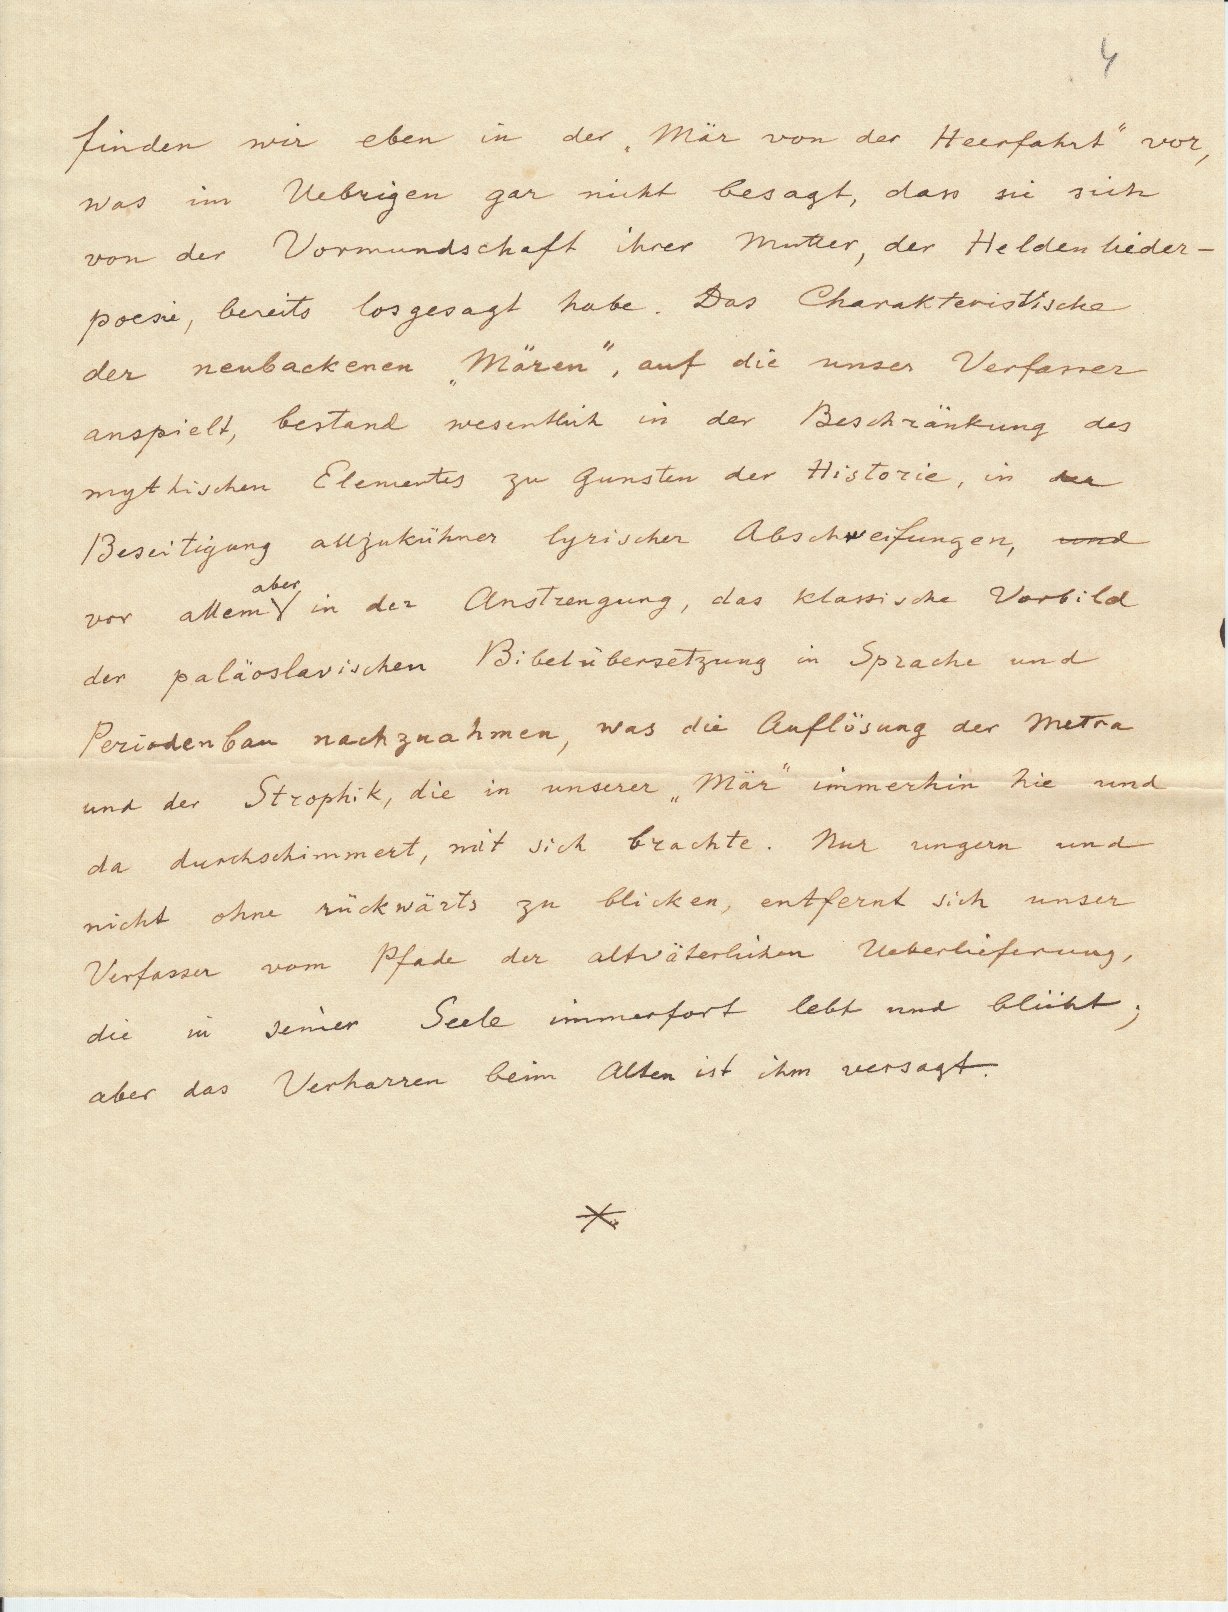 4
finden wir eben in der „Mär von der Heerfahrt" vor,
was im Uebrigen gar nicht besagt, dass sie sich
von der Vormundschaft ihrer Mutter, der Heldenlieder-
poesie, bereits losgesagt habe. Das Charakteristische
der neubackenen „Mären", auf die unser Verfasser
anspielt, bestand wesentlich in der Beschränkung des
mythischen Elementes zu Gunsten der Historie, in der
Beseitigung allzukühner lyrischer Abschweifungen, und
vor allem aber in der Anstrengung, das klassische Vorbild
der paläoslavischen Bibelübersetzung in Sprache und
Periodenbau nachzuahmen, was die Auflösung der Metra
und der Strophik, die in unserer „Mär" immerhin hie und
da durchschimmert, mit sich brachte. Nur ungern und
nicht ohne rückwärts zu blicken, entfernt sich unser
Verfasser vom Pfade der altväterlichen Ueberlieferung,
die in seiner Seele immerfort lebt und blüht;
aber das Verharren beim Alten ist ihm versagt.